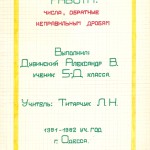 РАБОТА
ЧИСЛА, ОБРАТНЫЕ
НЕПРАВИЛЬНЫМ ДРОБЯМ
ВЫПОЛНИЛ
ДИВИНСКИЙ АЛЕКСАНДР В.
УЧЕНИК 5-Д КЛАССА.
УЧИТЕЛЬ: ТИТАРЧУК Л.Н.
1981-1982 УЧ. ГОД
Г. ОДЕССА.